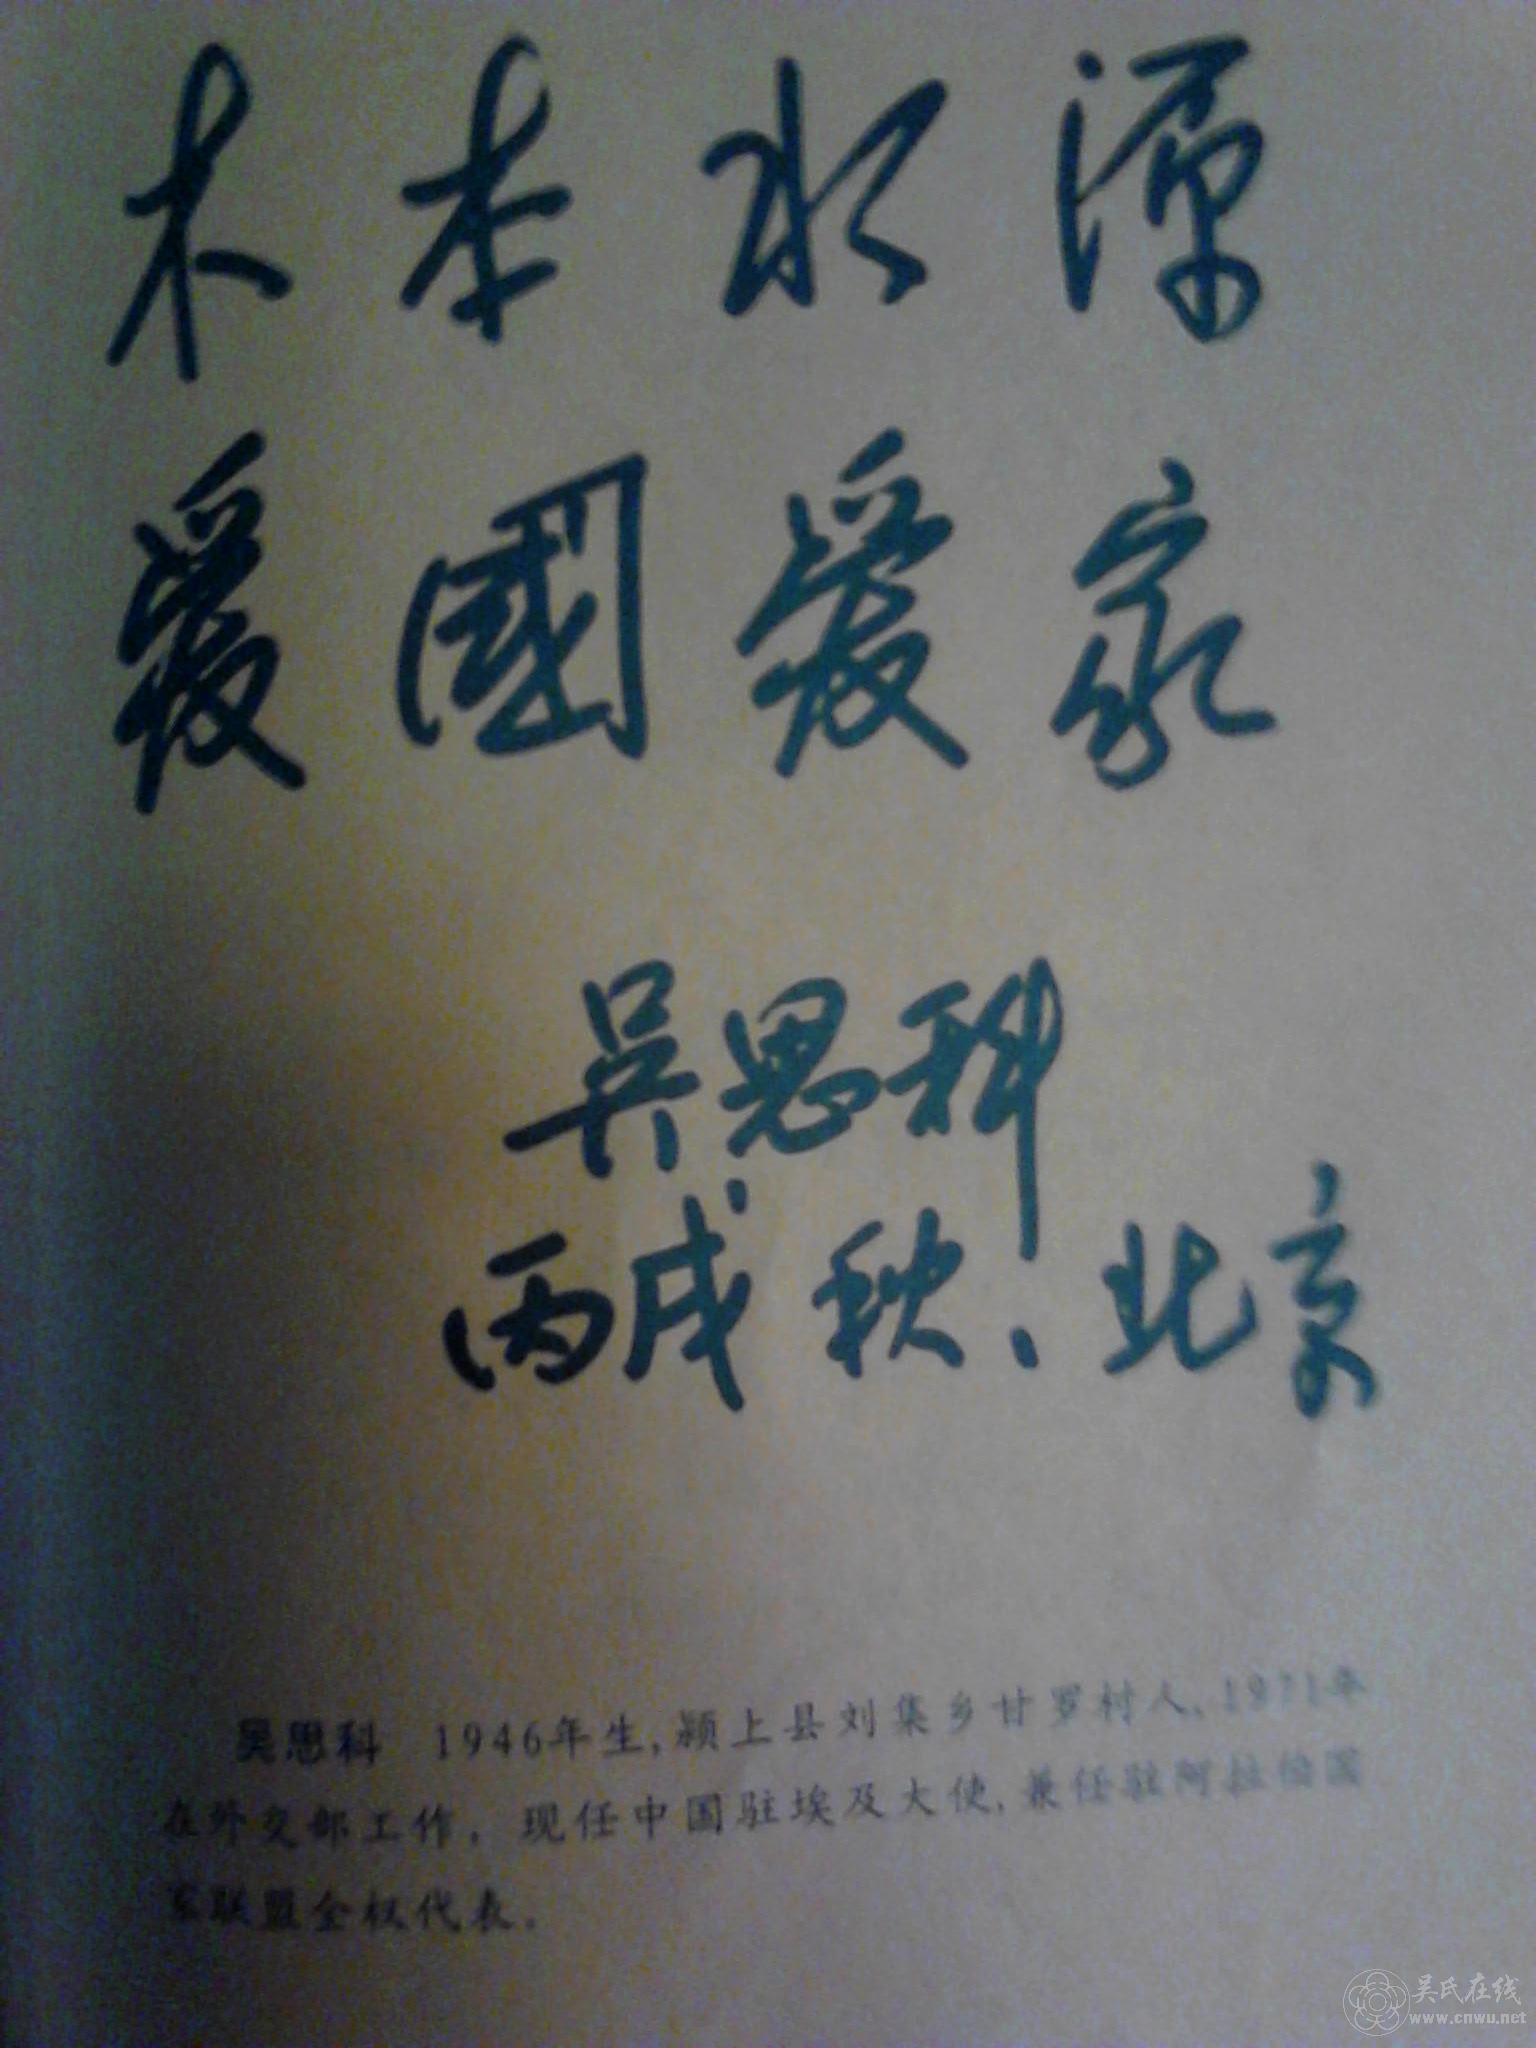 木本水源
爱國爱家
吴思科
丙戌秋、北京
吴思科 1946年生,颍上县刘集乡甘罗村人,1971年
在外交部工作。现任中国驻埃及大使,兼任驻阿拉伯国
家联盟全权代表。
吴氏在线
www.cnwu.net